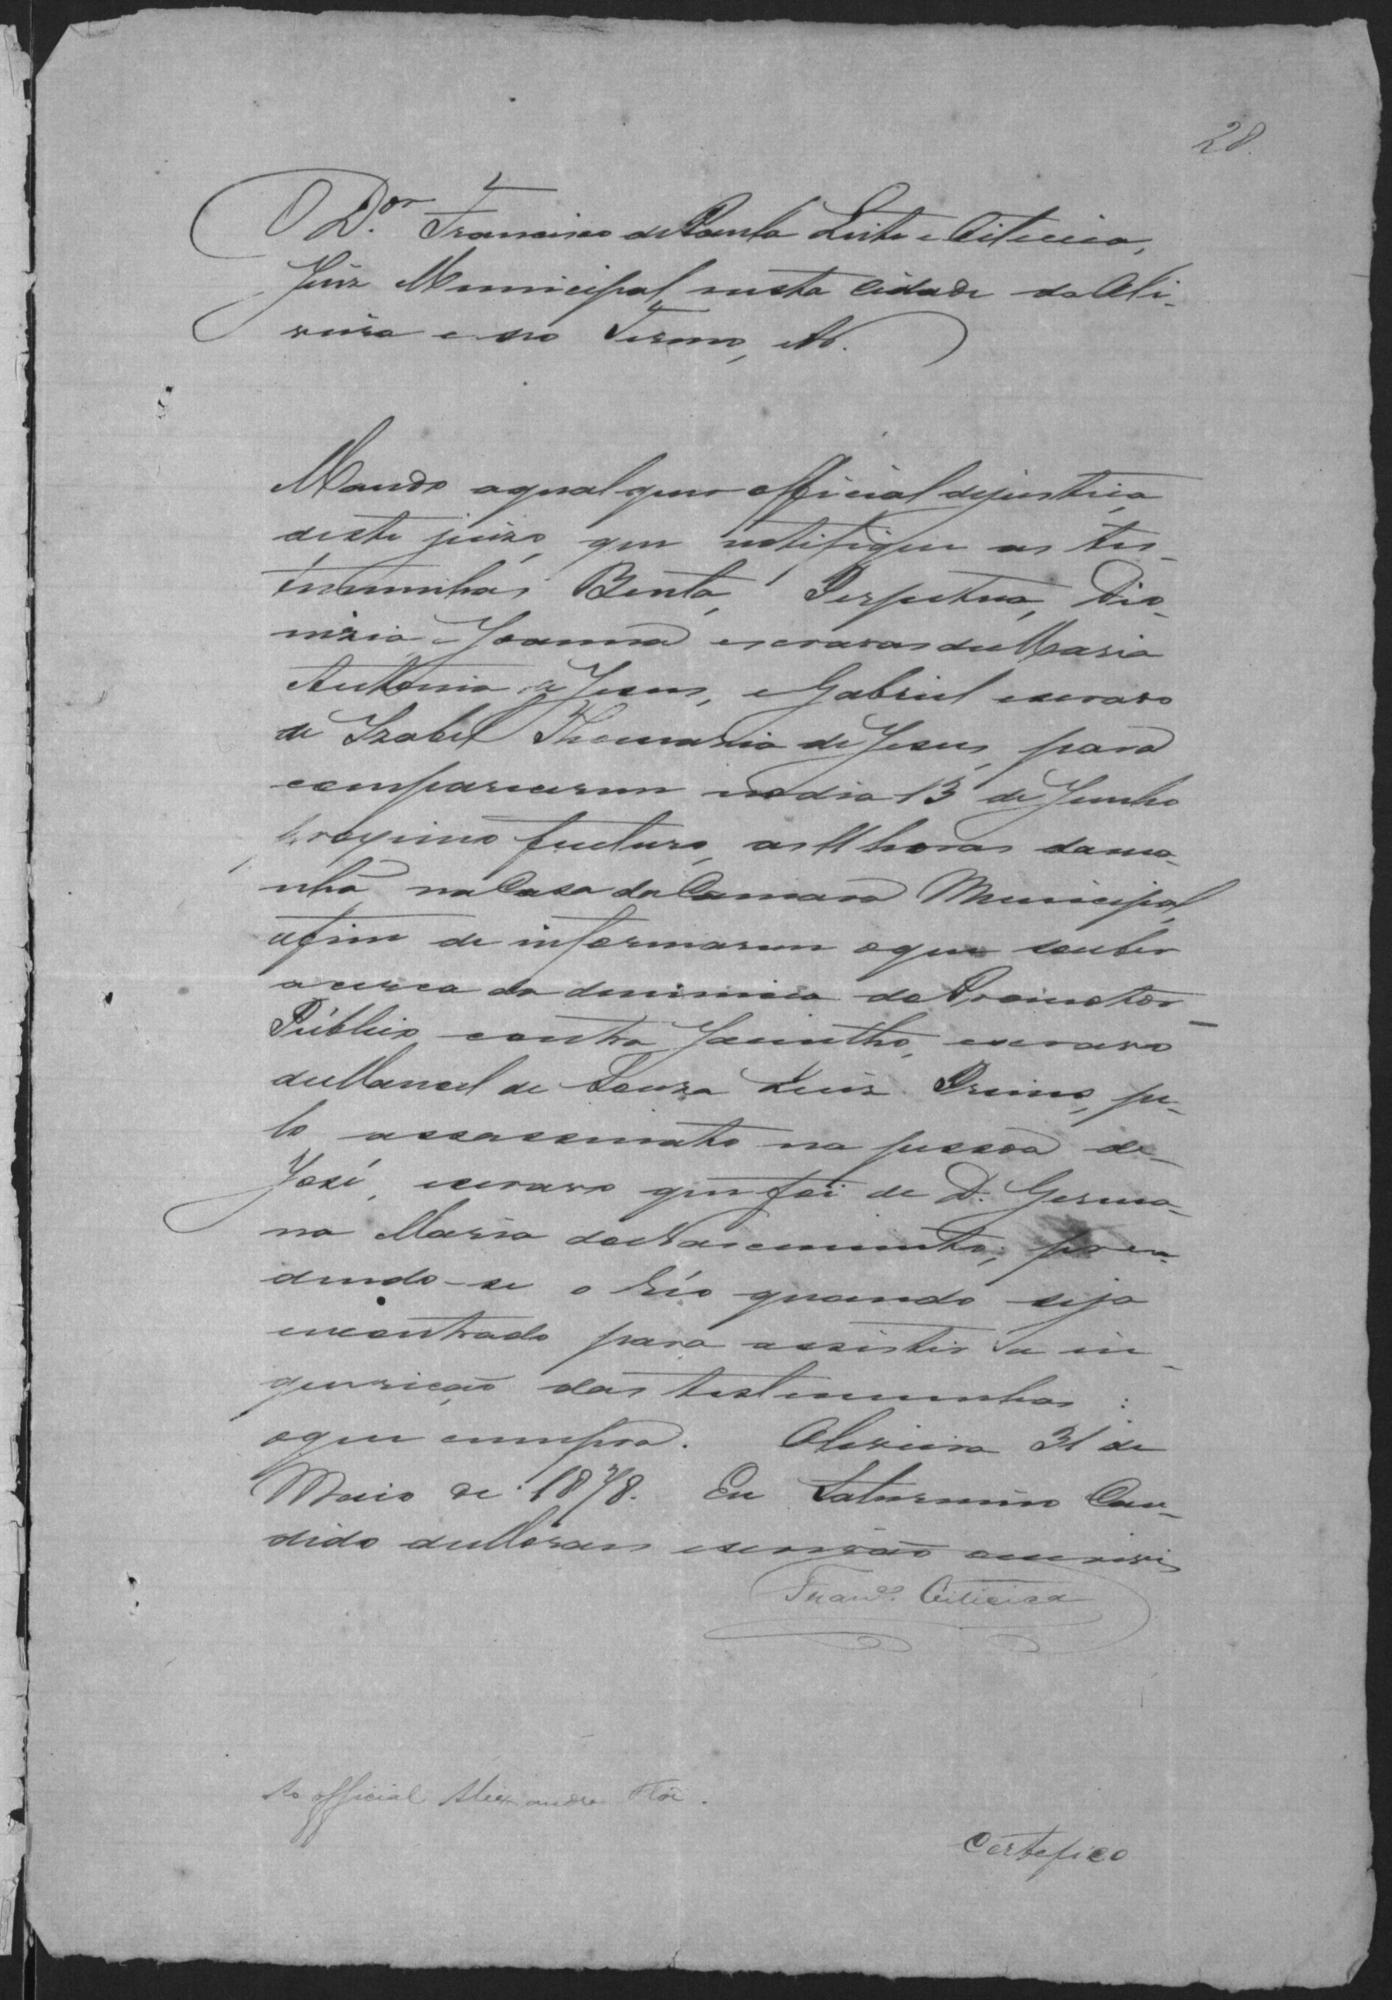 28.
O D.or Francisco de Paula Leite e Oiticica,
Juiz Municipal nesta Cidade da Oli-
veira e seo Termo, etc.
Mando a qual quer official de justiça
deste juizo, que notifique as tes-
temunhas Benta, Perpetua, Dio-
nizia, e Joanna escravas de Maria
Antonia de Jesus, e Gabriel escravo
de Izabel Thomazia de Jesus, para
comparecerem no dia 13 de Junho
proximo futuro, as 11 horas da ma-
nhã na Casa da Camara Municipal,
afim de informarem o que souber
acerca da denuncia do Promotor
Publico contra Jacintho, escravo
de Manoel de Souza Luiz Primo, pe-
lo assassinato na pessoa de
José, escravo que foi de D. Germa-
na Maria do Nascimento; pren-
dendo-se o réo quando seja
encontrado para assistir a in-
quirição das testemunhas:
o que cumpra. Oliveira 31 de
Maio de 1878. Eu Saturnino Can-
dido de Moraes escrivão escrevi
Fran.co Oiticica
Ao official Alexandre Flôr.
Certefico